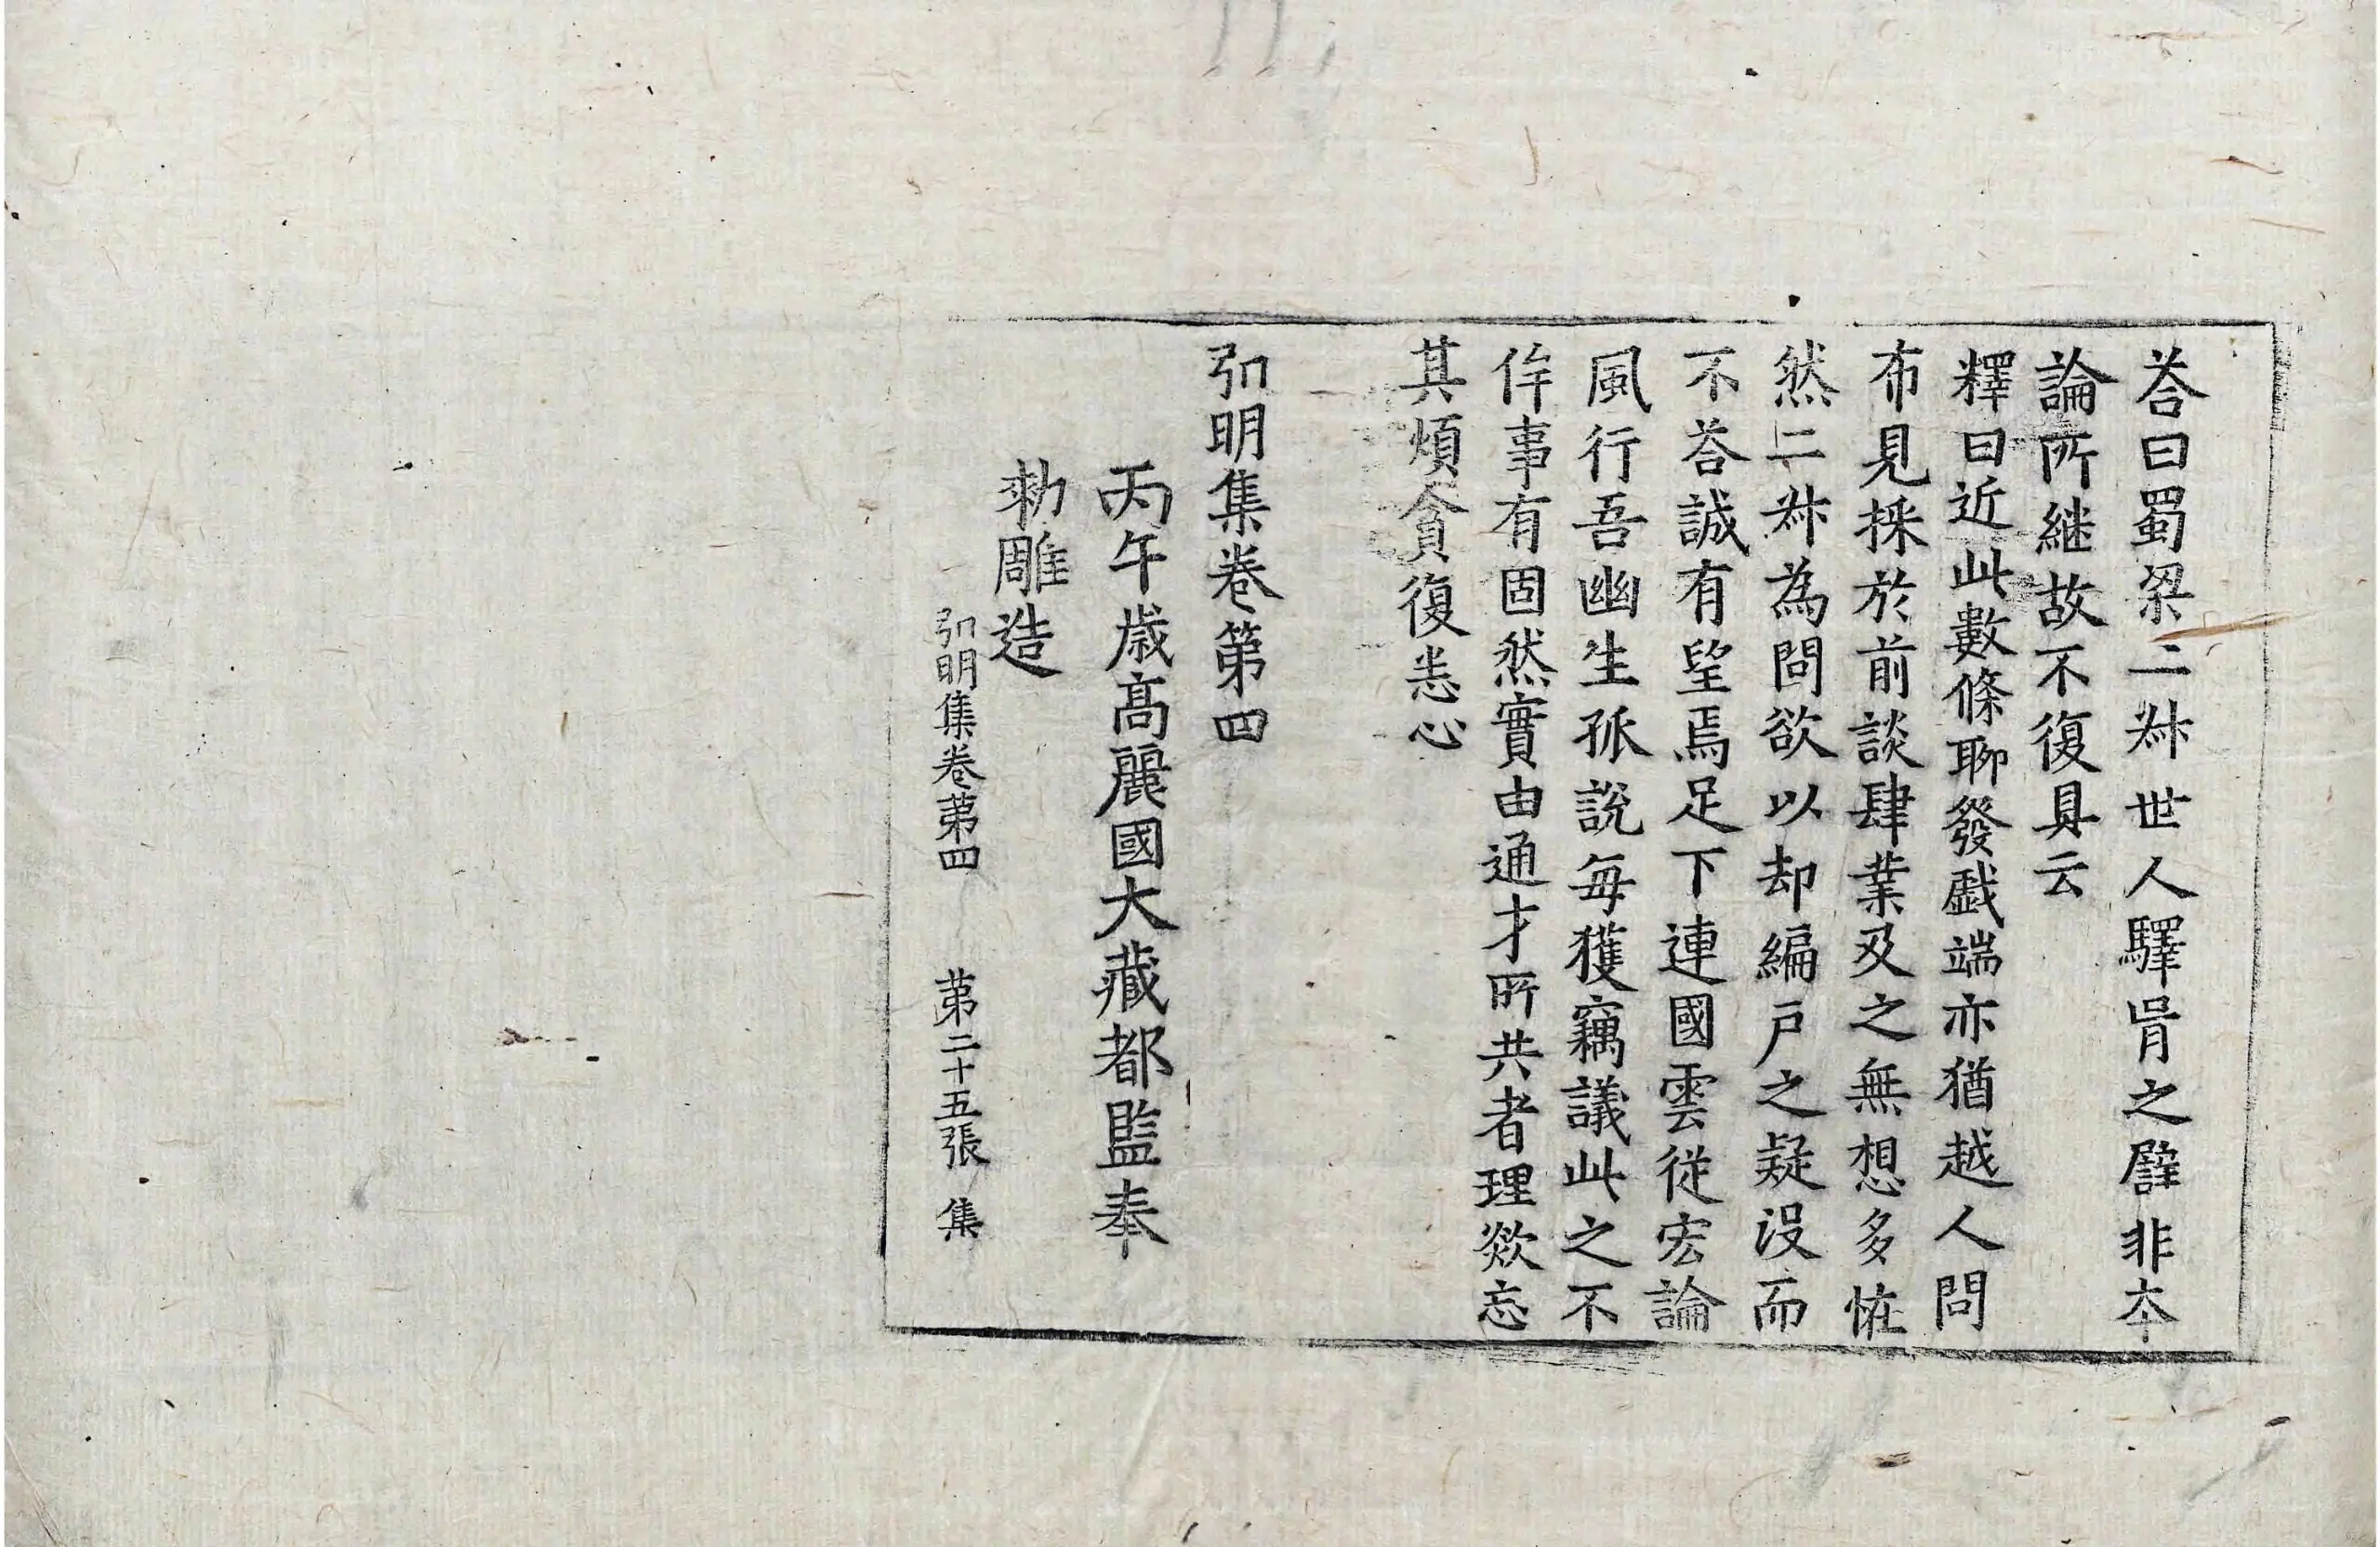 荅曰蜀梁二叔世人驛胥之譬非夲
論所継故不復具云
釋曰近此數條聊發戱端亦猶越人問
布見採於前談肆業及之無想多恠
然二叔為問欲以却編戸之疑没而
不荅誠有望焉足下連國雲從宏論
風行吾幽生孤說每獲竊議此之不
侔事有固然實由通才所共者理欻忘
其煩貪復悉心
弘明集卷第四
丙午歳髙麗國大藏都監奉
勑雕造
弘明集卷第四 第二十五張 集